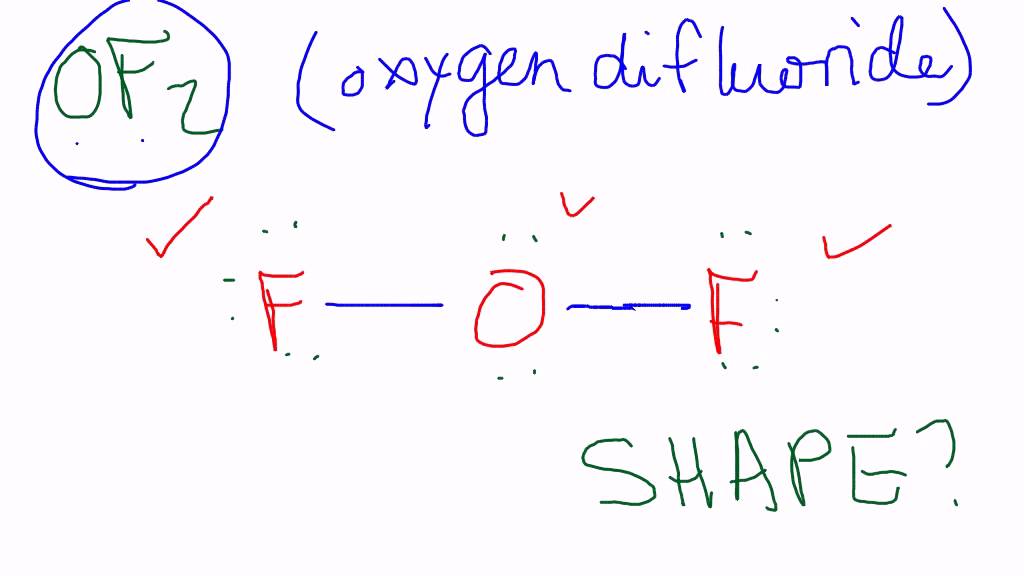 OF2 (oxygen difluoride)
F — O — F
SHAPE?